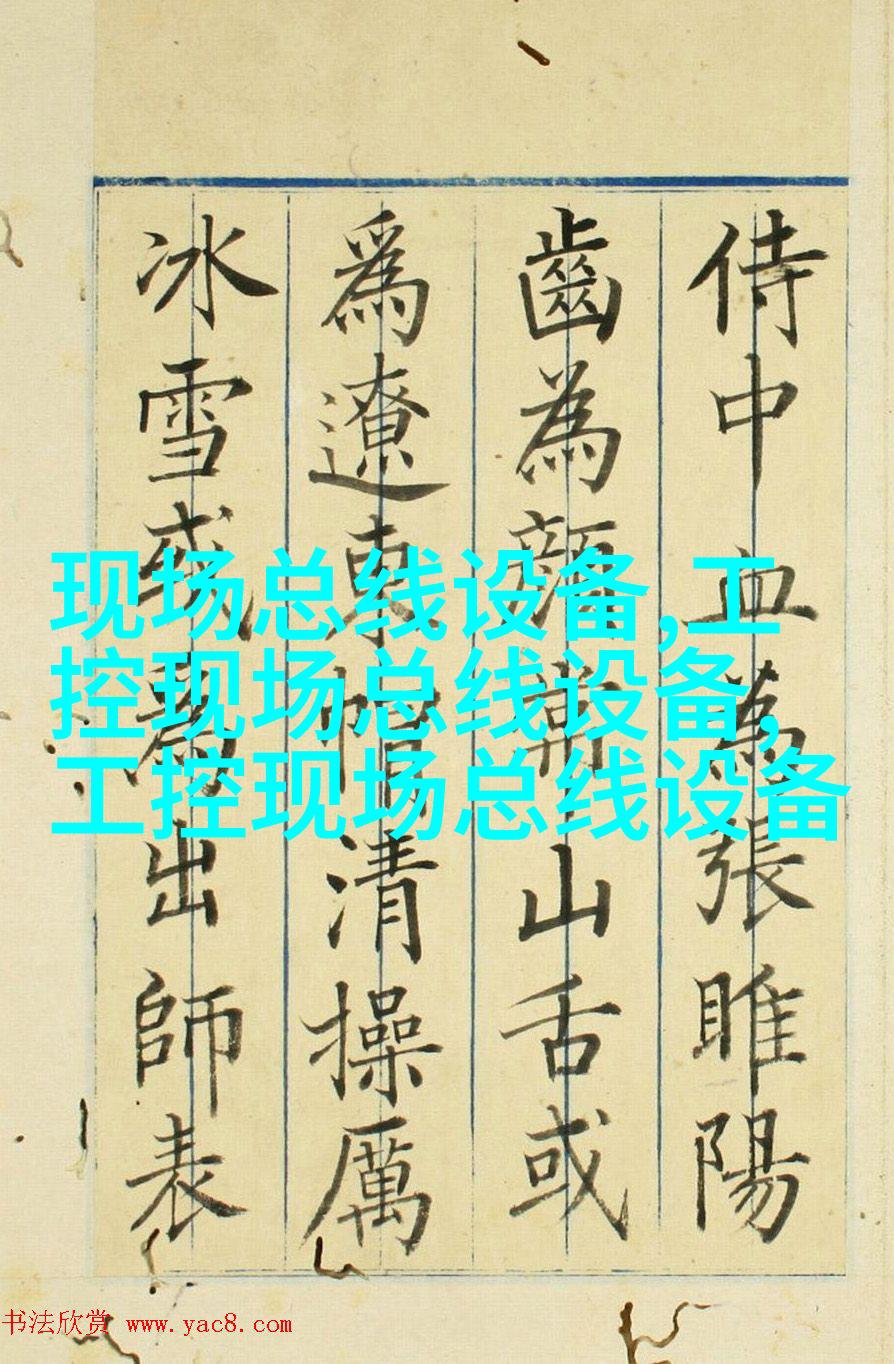 侍中血為張睢陽
齒為顏常山舌或
爲遼東帽清操厲
冰雪或爲出師表
现场总线设备,工
控现场总线设备,
工控现场总线设备
书法欣赏 www.yac8.com